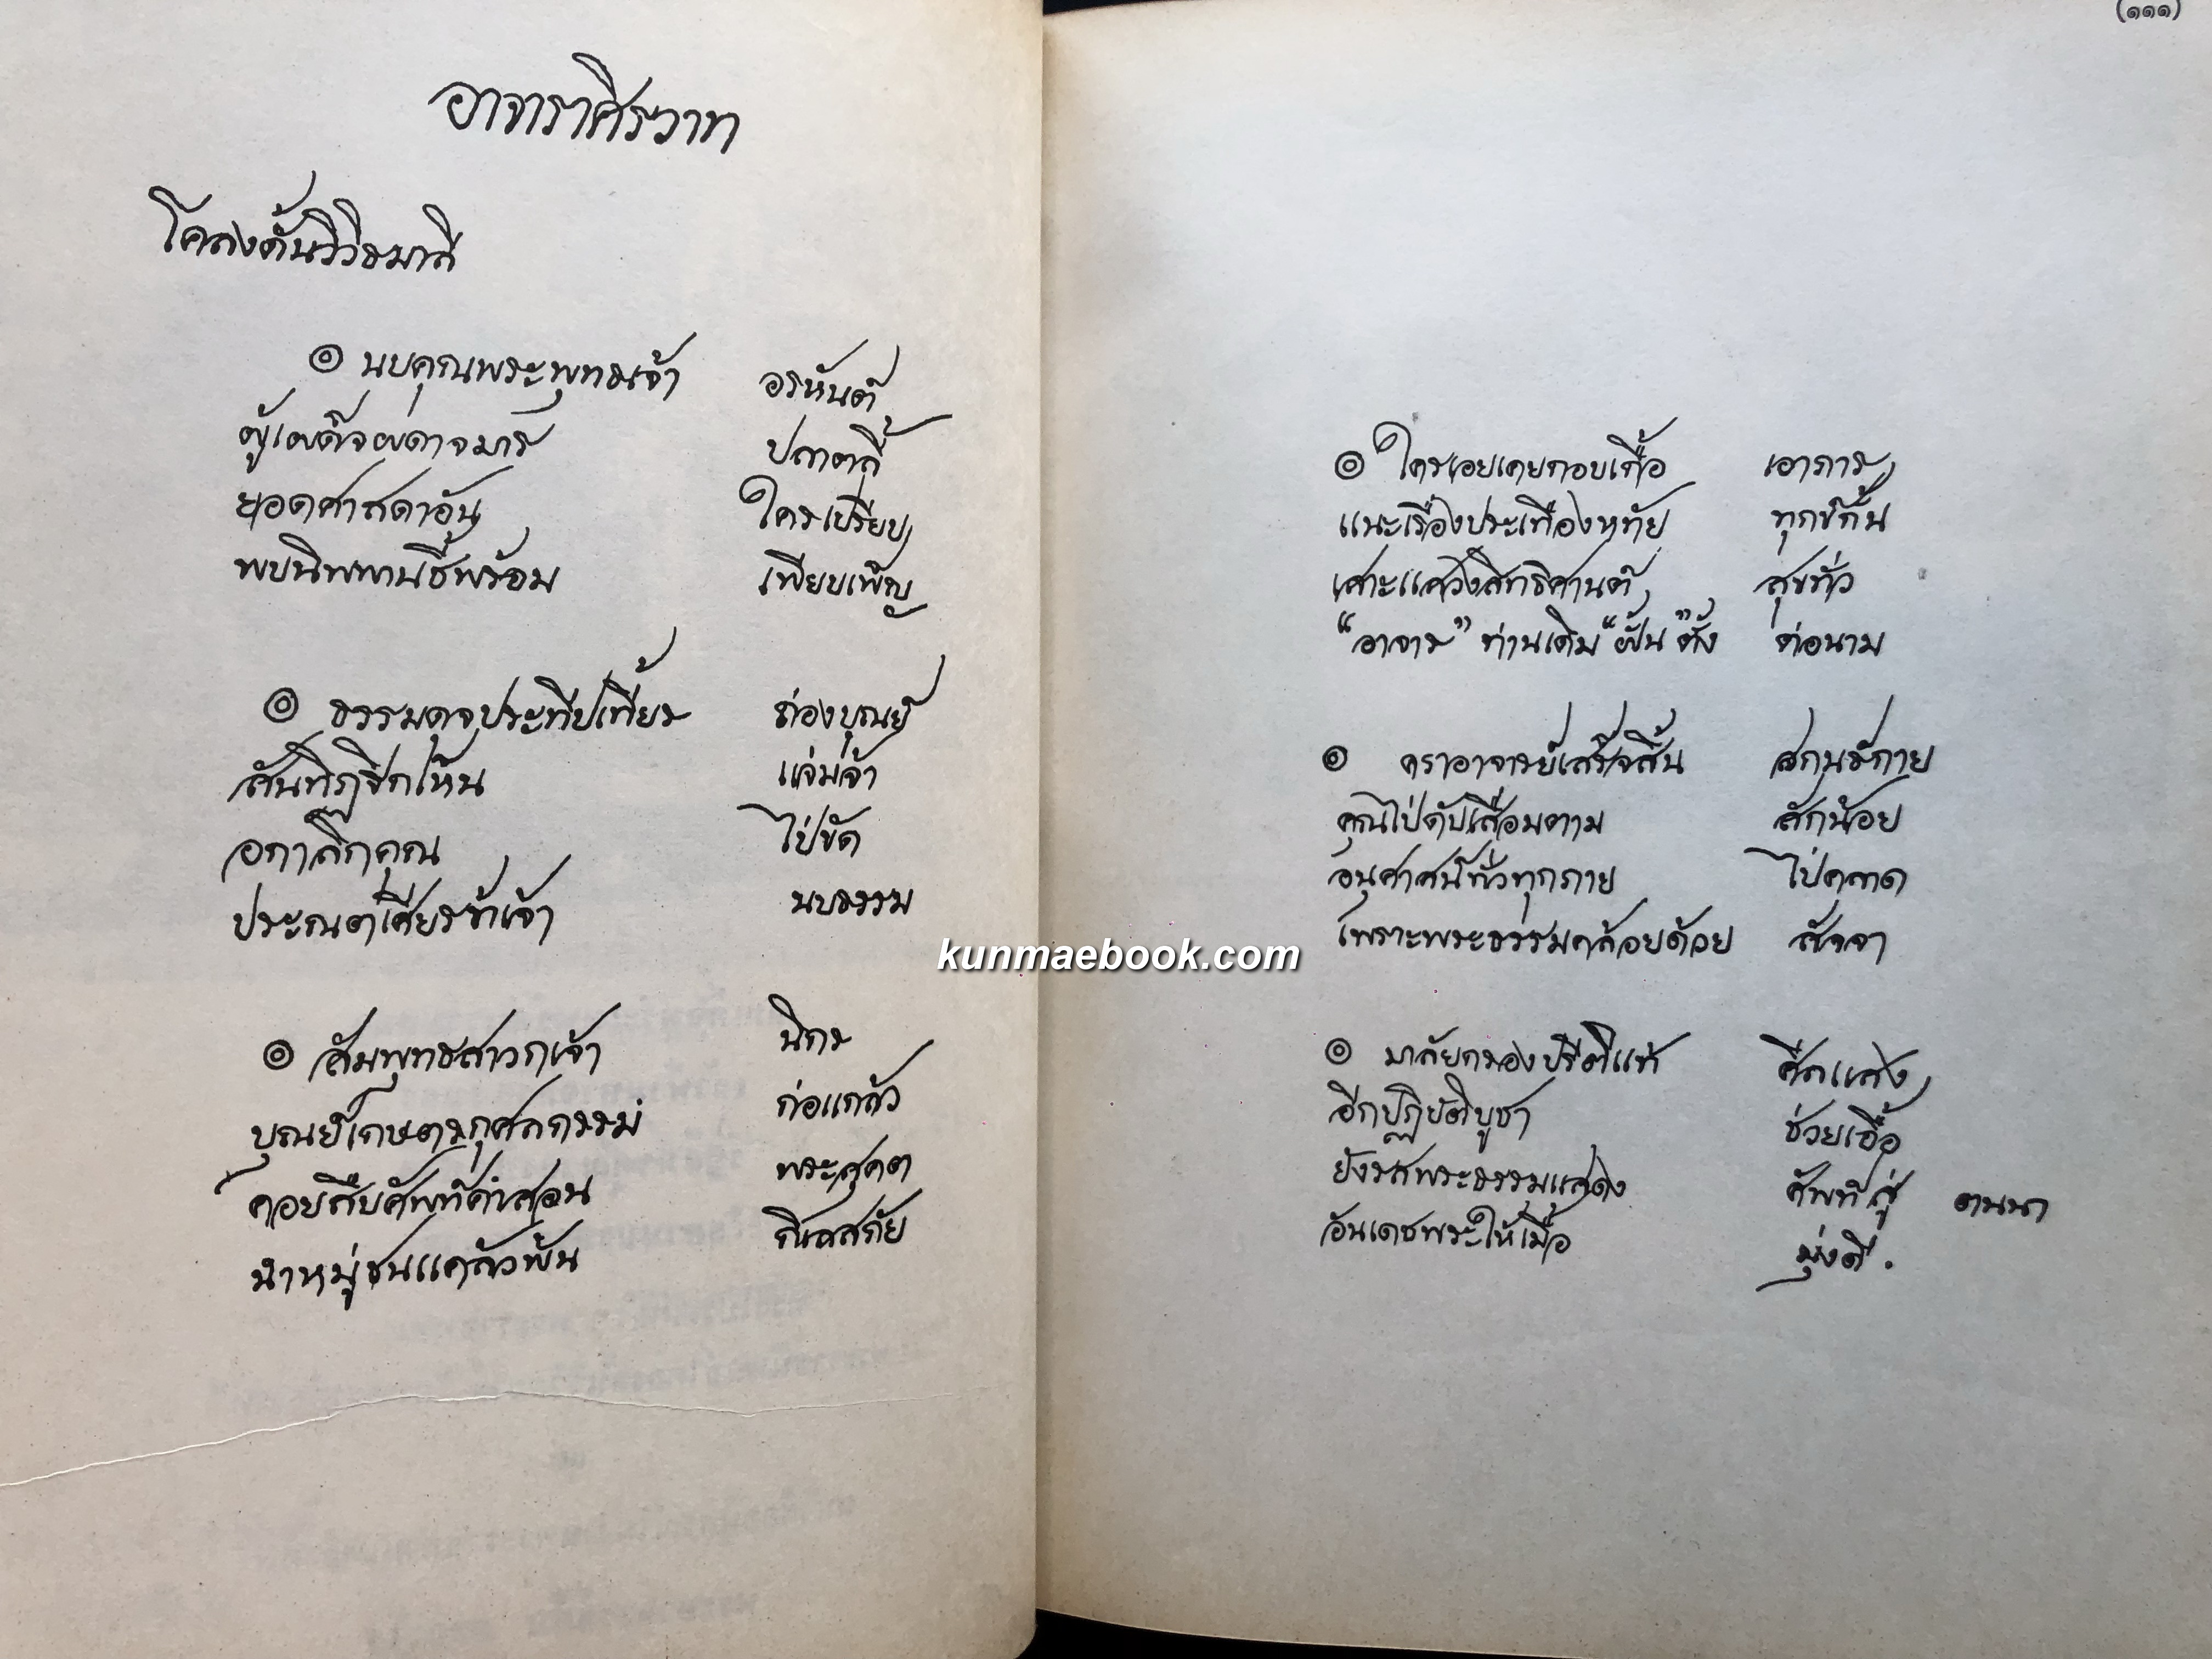 อาจาราศิรวาท
โคลงดั้นวิวิธมาลี
๏ นบคุณพระพุทธเจ้า อรหันต์
ผู้เผด็จผดาจมาร ปลาตลี้
ยอดศาสดาอัน ใครเปรียบ
พบนิพพานชี้พร้อม เพียบเพ็ญ
๏ ธรรมดุจประทีปเที้ยร ถ่องบุณย์
สันทิฏฐิกให้หน แจ่มจ้า
อกาลิกคุณ ไป่ขัด
ประณตเศียรข้าเจ้า นบธรรม
๏ สัมพุทธสาวกเจ้า นิกร
บุณย์เกษตรกุศลกรรม์ ก่อแกล้ว
คอยสืบศัพท์คำสอน พระสุคต
นำหมู่ชนแคล้วพ้น กิเลสภัย
(๑๑๑)
๏ ใครเอยเคยกอบเกื้อ เอาภาร
แนะเรื่องประเทืองหทัย ทุกข์กั้น
เสาะแสวงสิทธิศานต์ สุขทั่ว
"อาจาร" ท่านเดิม "ฝั้น" ตั้ง ต่อนาม
๏ คราอาจารย์เสร็จสิ้น สกนธ์กาย
คุณไป่ดับเสื่อมตาม สักน้อย
อนุศาสน์ทั่วทุกภาย ไป่คลาด
เพราะพระธรรมคล้อยด้วย สัจจา
๏ มาลัยกรองปรีติแท้ ศีลแสง
อีกปฏิบัติบูชา ช่วยเอื้อ
ยังรสพระธรรมแสดง ศัพท์สู่ ตนนา
อันเดชพระให้เมื้อ มุ่งดี.
kunmaebook.com